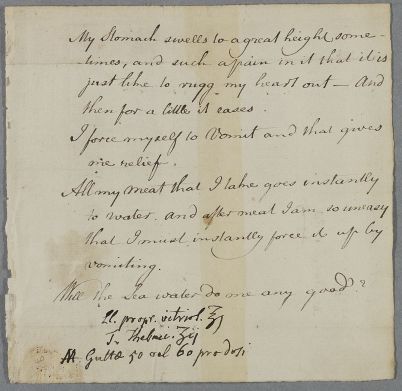 My Stomach swells to a great height some-
times, and such a pain in it that it is
just like to rugg my heart out — And
then for a little it eases.
I force myself to Vomit and that gives
me relief.
All my meat that I take goes instantly
to water. and after meat I am so uneasy
that I must instantly force it up by
vomiting.
Will the Sea water do me any good?
El. propr. vitriol. ℥j
T. Thebaic. ʒij
M Guttæ 50 vel 60 pro dosi